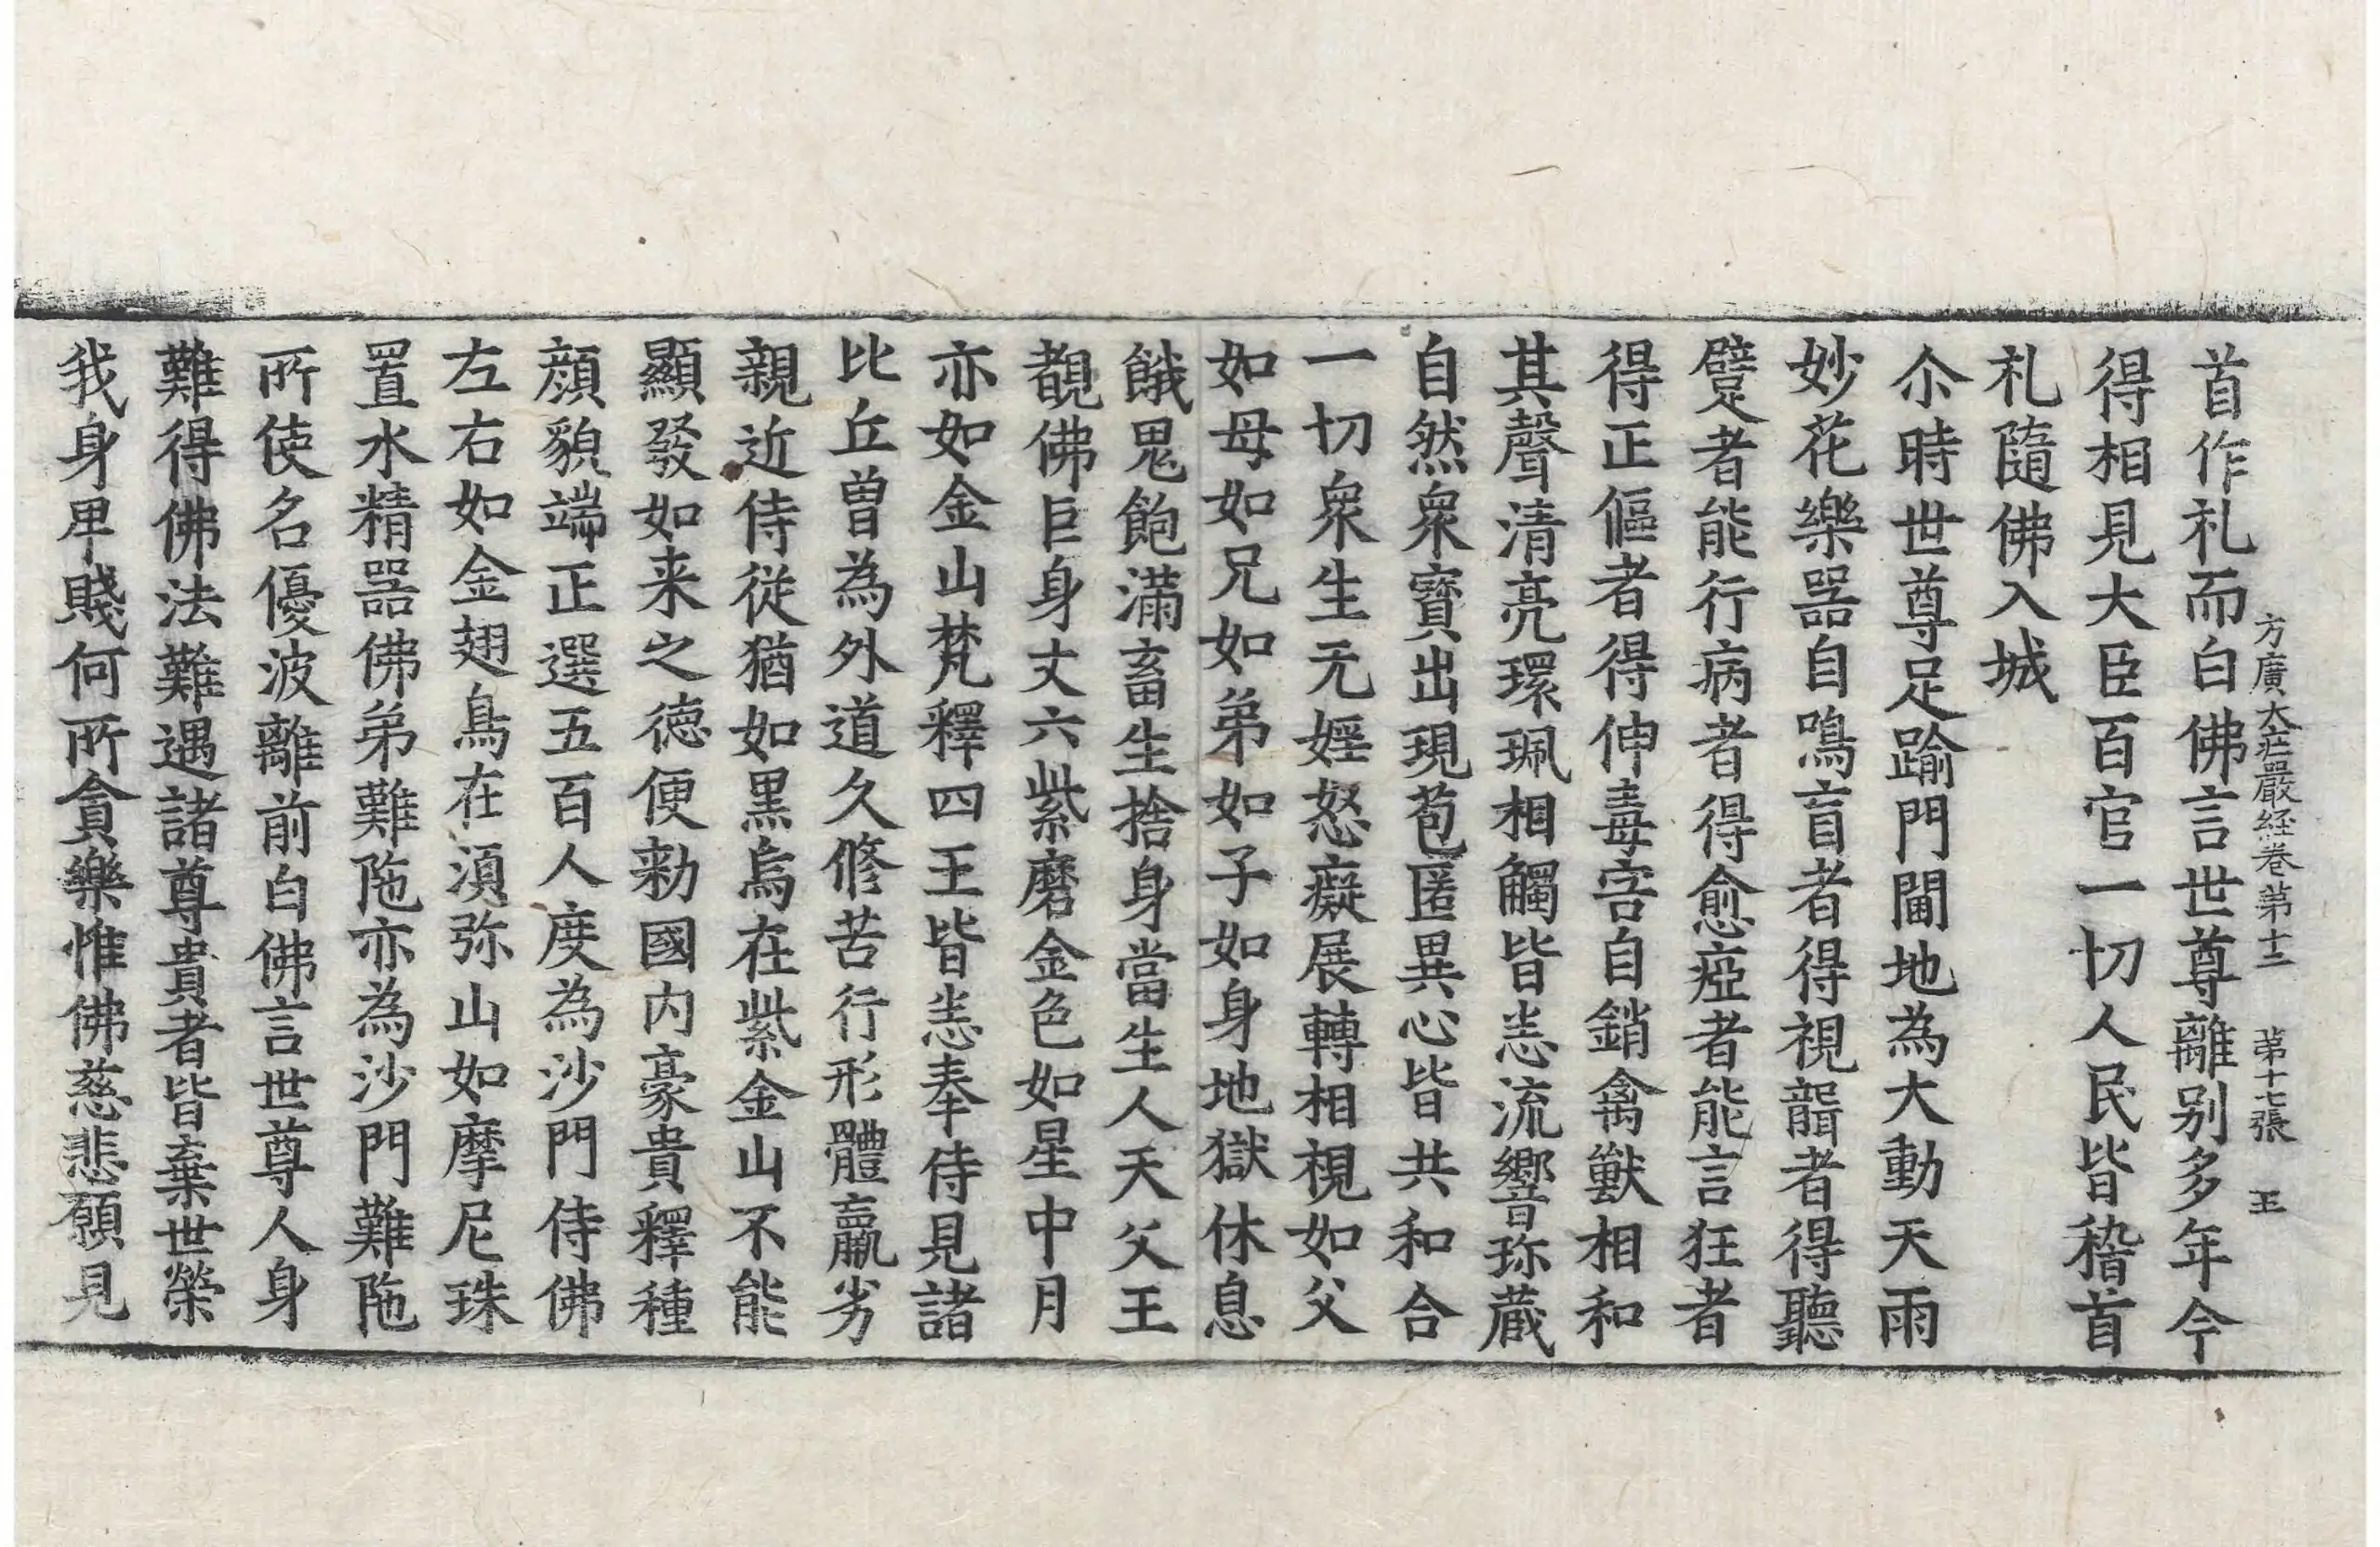 方廣大莊嚴経卷第十二 第十七張 王
首作礼而白佛言世尊離别多年今
得相見大臣百官一切人民皆稽首
礼隨佛入城
尒時世尊足踰門閫地為大動天雨
妙花樂器自鳴盲者得視聾者得聽
躄者能行病者得愈瘂者能言狂者
得正傴者得伸毒害自銷禽獸相和
其聲清亮環珮相觸皆悉流響珎蔵
自然衆寶出現苞匿異心皆共和合
一切衆生无婬怒癡展轉相視如父
如母如兄如弟如子如身地獄休息
餓鬼飽滿畜生捨身當生人天父王
覩佛巨身丈六紫磨金色如星中月
亦如金山梵釋四王皆悉奉侍見諸
比丘曽為外道久修苦行形體羸劣
親近侍從猶如黒烏在紫金山不能
顯發如来之德便勑國内豪貴釋種
顔貌端正選五百人度為沙門侍佛
左右如金翅鳥在湏弥山如摩尼珠
置水精器佛弟難陁亦為沙門難陁
所使名優波離前白佛言世尊人身
難得佛法難遇諸尊貴者皆棄世榮
我身卑賤何所貪樂惟佛慈悲願見